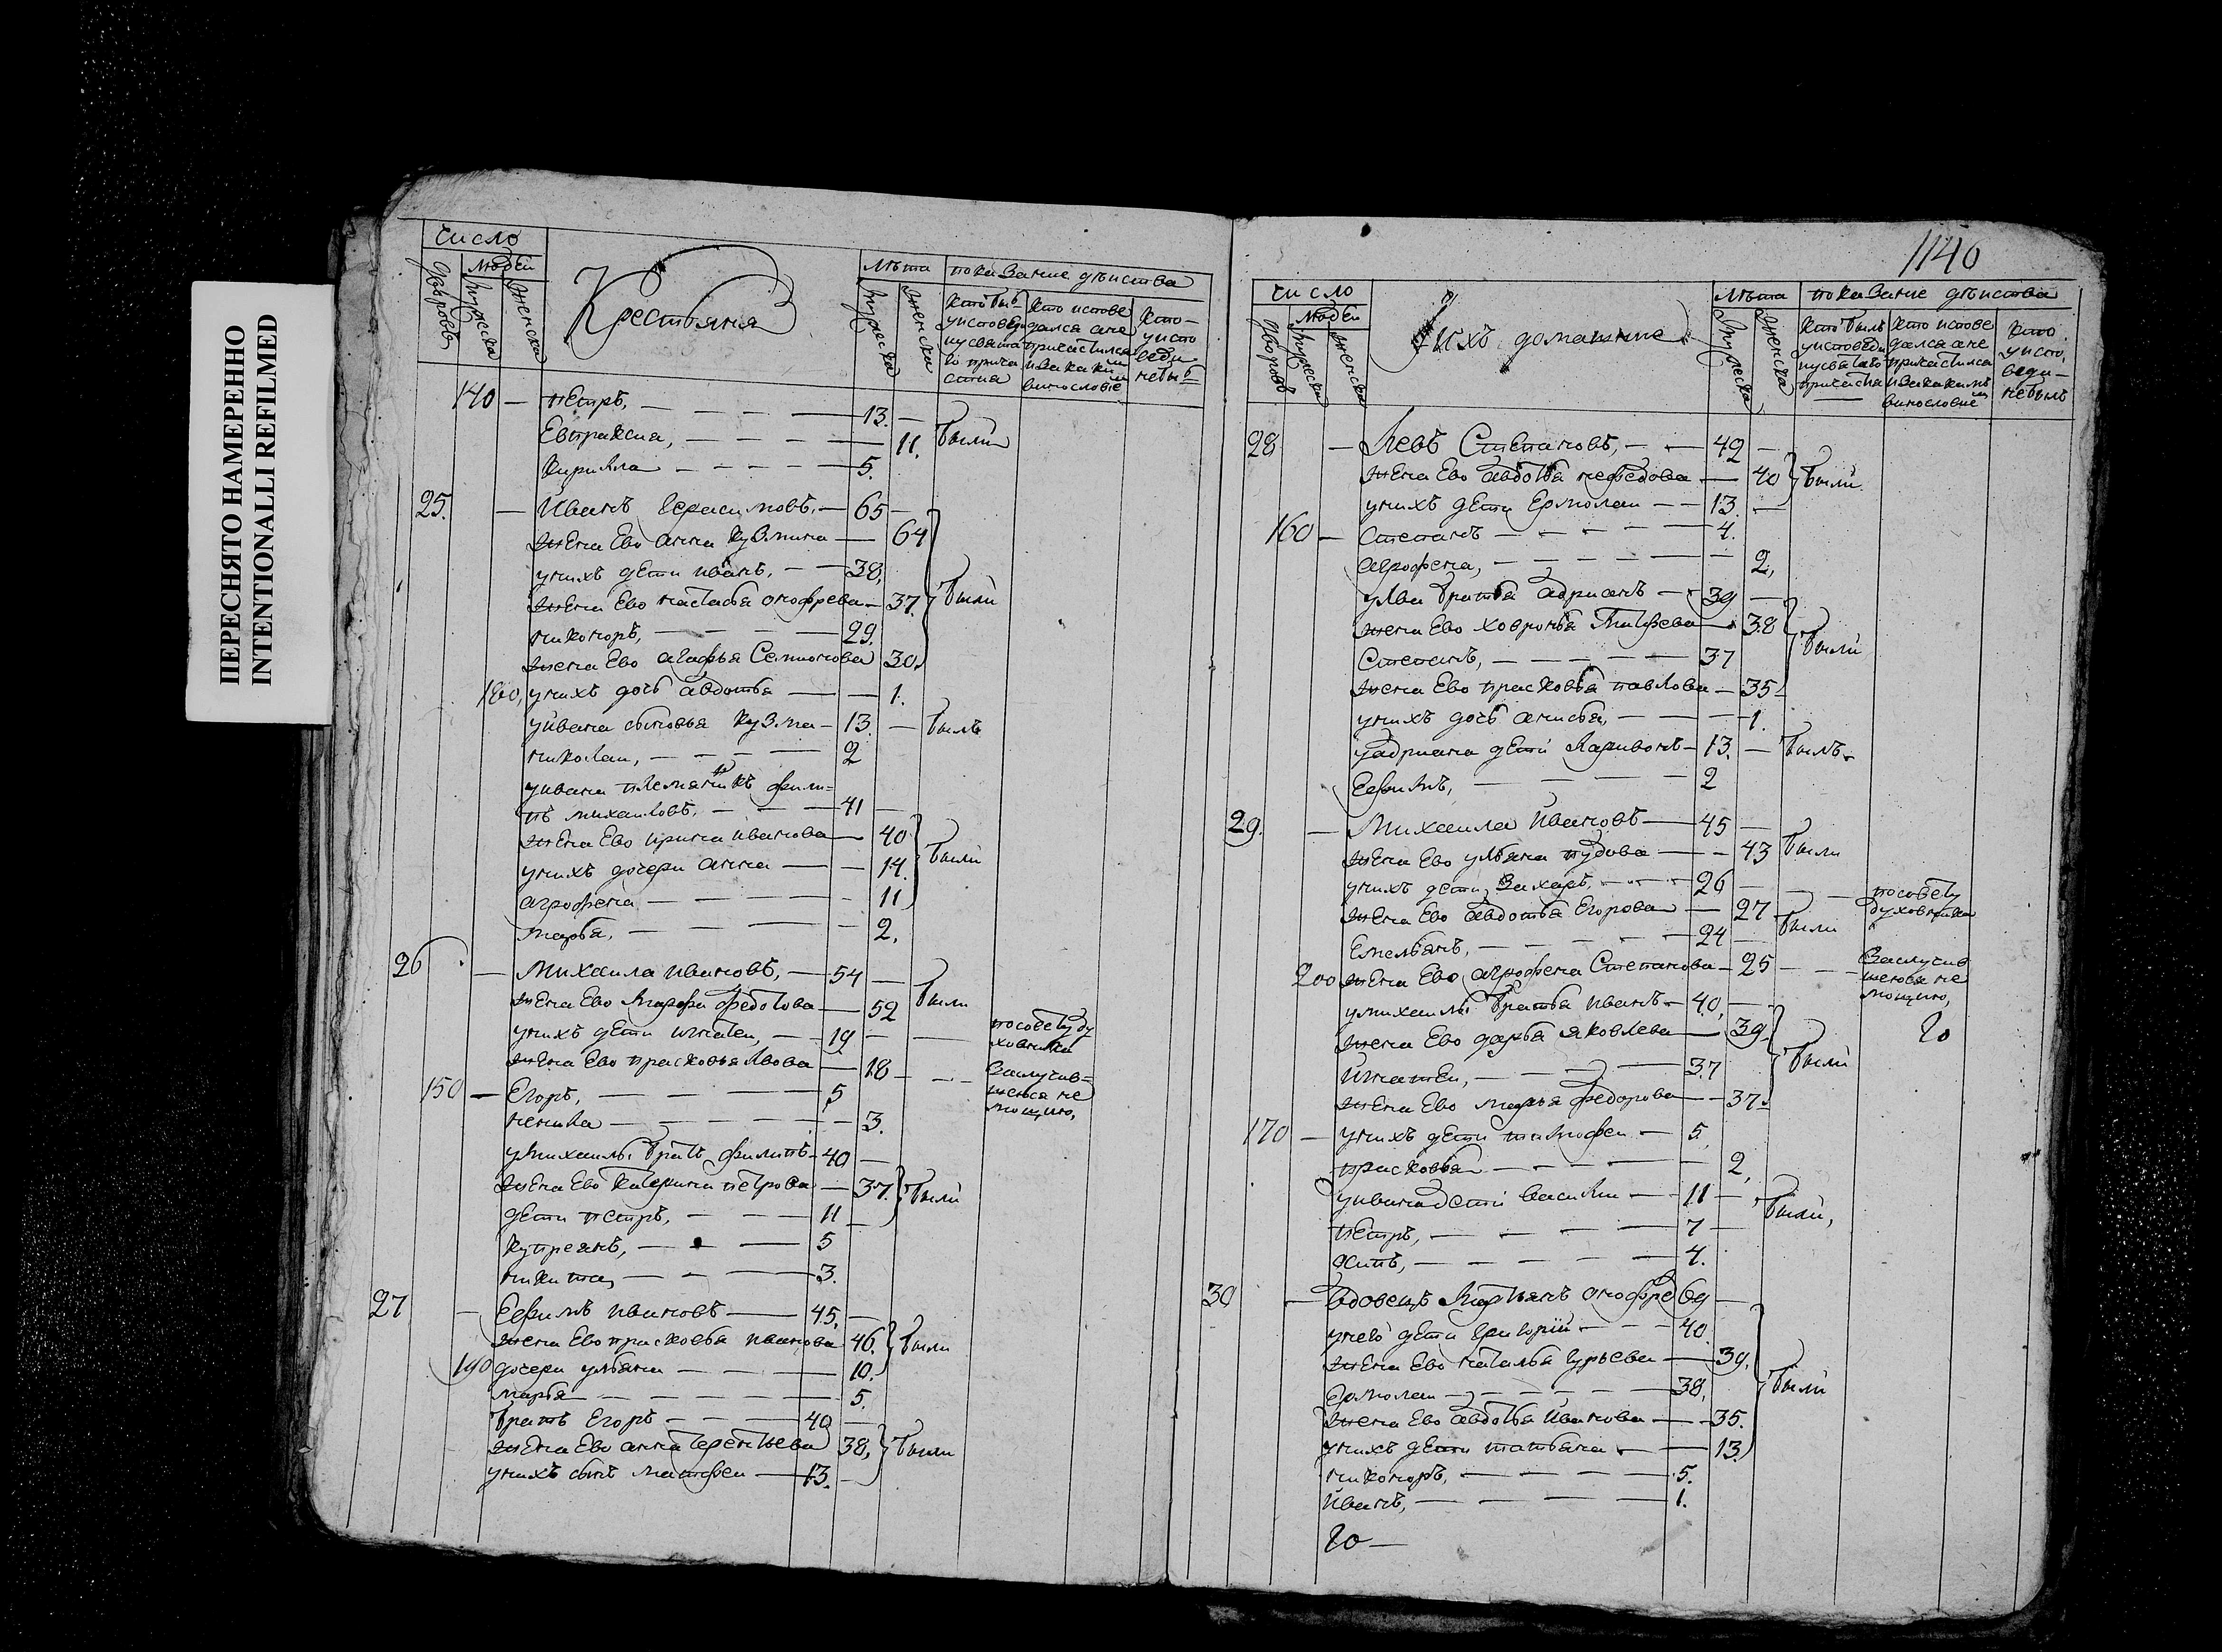 ПЕРЕСНЯТО НАМЕРЕННО
INTENTIONALLI REFILMED
число
людей
дворовъ
мужеска
женска
Крестьяня
лѣта
мужеска
женска
показание дѣиства
кто былъ
у исповеди
и у свята
го прича
стия
кто испове
дался а не
причастился
и за каким
винословіе
кто
у испо
веди
не былъ
140 — петръ, — 13. —
Евпраксиа, — 11. были
Кирилла — 5.
25. — Иванъ Герасимовъ. — 65 —
жена Ево анна кузмина — 64
у нихъ дети иванъ, — 38,
жена Ево настасья онофрева — 37. были
никоноръ, — 29.
жена Ево агафья Семионова 30,
180, у нихъ дочь авдотья — 1.
у ивана сыновья кузма — 13. — былъ
николаи, — 2
у ивана племянникъ фили=
пъ михаиловъ, — 41 —
жена Ево ирина иванова — 40
у нихъ дочери анна — 14. были
агрофена — 11
марья, — 2.
26 — Михаила ивановъ, — 54 —
жена Ево Марфа федотова — 52 были
у нихъ дети игнатеи, — 19 — по совету ду
ховника
жена Ево прасковья Львова — 18 — за случив=
шеюся не
мощию,
150 — Егоръ, — 5
ненила — 3.
у михаилы братъ филипъ — 40 —
жена Ево катерина петрова — 37. были
дети петръ, — 11 —
купреянъ, — 5
никита, — 3.
27 — Ефимъ ивановъ — 45, —
жена Ево прасковья иванова 46. были
190 дочери ульяна — 10.
марья — 5.
братъ Егоръ — 40 —
жена Ево анна терентьева 38, были
у нихъ сынъ матфеи — 13. —
1140
число
людей
дворовъ
мужеска
женска
и ихъ домашние
лѣта
мужеска
женска
показание дѣиства
кто былъ
у исповеди
и у святаго
причастия
кто испове
дался а не
причастился
и за какимъ
винословие
кто
у испо,
веди
не былъ
28 — Левъ Степановъ, — 42 —
жена Ево авдотья нефедова — 40 были
у нихъ дети Ермолаи — 13. —
160 — Степанъ — 4.
агрофена, — 2,
у Лва братья адрианъ — 39 —
жена Ево ховронья Матфева — 38
Степанъ, — 37 были
жена Ево прасковья павлова — 35
у нихъ дочь анисья, — 1.
у адриана дети Ларивонъ — 13. — былъ
Ефимъ, — 2
29. — Михаила ивановъ — 45 —
жена Ево ульяна пудова — 43 были
у нихъ дети, Захаръ, — 26 — по совету
духовника
жена Ево авдотья Егорова — 27 были
Емельянъ, — 24 —
200 жена Ево агрофена Степанова — 25 — за случив
шеюся не
мощию,
у михаилы братья иванъ — 40, —
жена Ево дарья яковлева — 39.
20
Игнатеи, — 37 были
жена Ево марья федорова — 37
170 — у нихъ дети тимофеи — 5,
прасковья — 2,
у ивана дети василии — 11 — были,
петръ, — 7 —
осипъ, — 4.
30 — вдовецъ Мартьянъ онофре 69 —
у него дети григорий — 40
жена Ево наталья гурьева — 39.
Ермолаи — 38, были
жена Ево авдотья Иванова — 35.
у нихъ дети татьяна — 13.
никоноръ, — 5.
Иванъ, — 1.
20 —